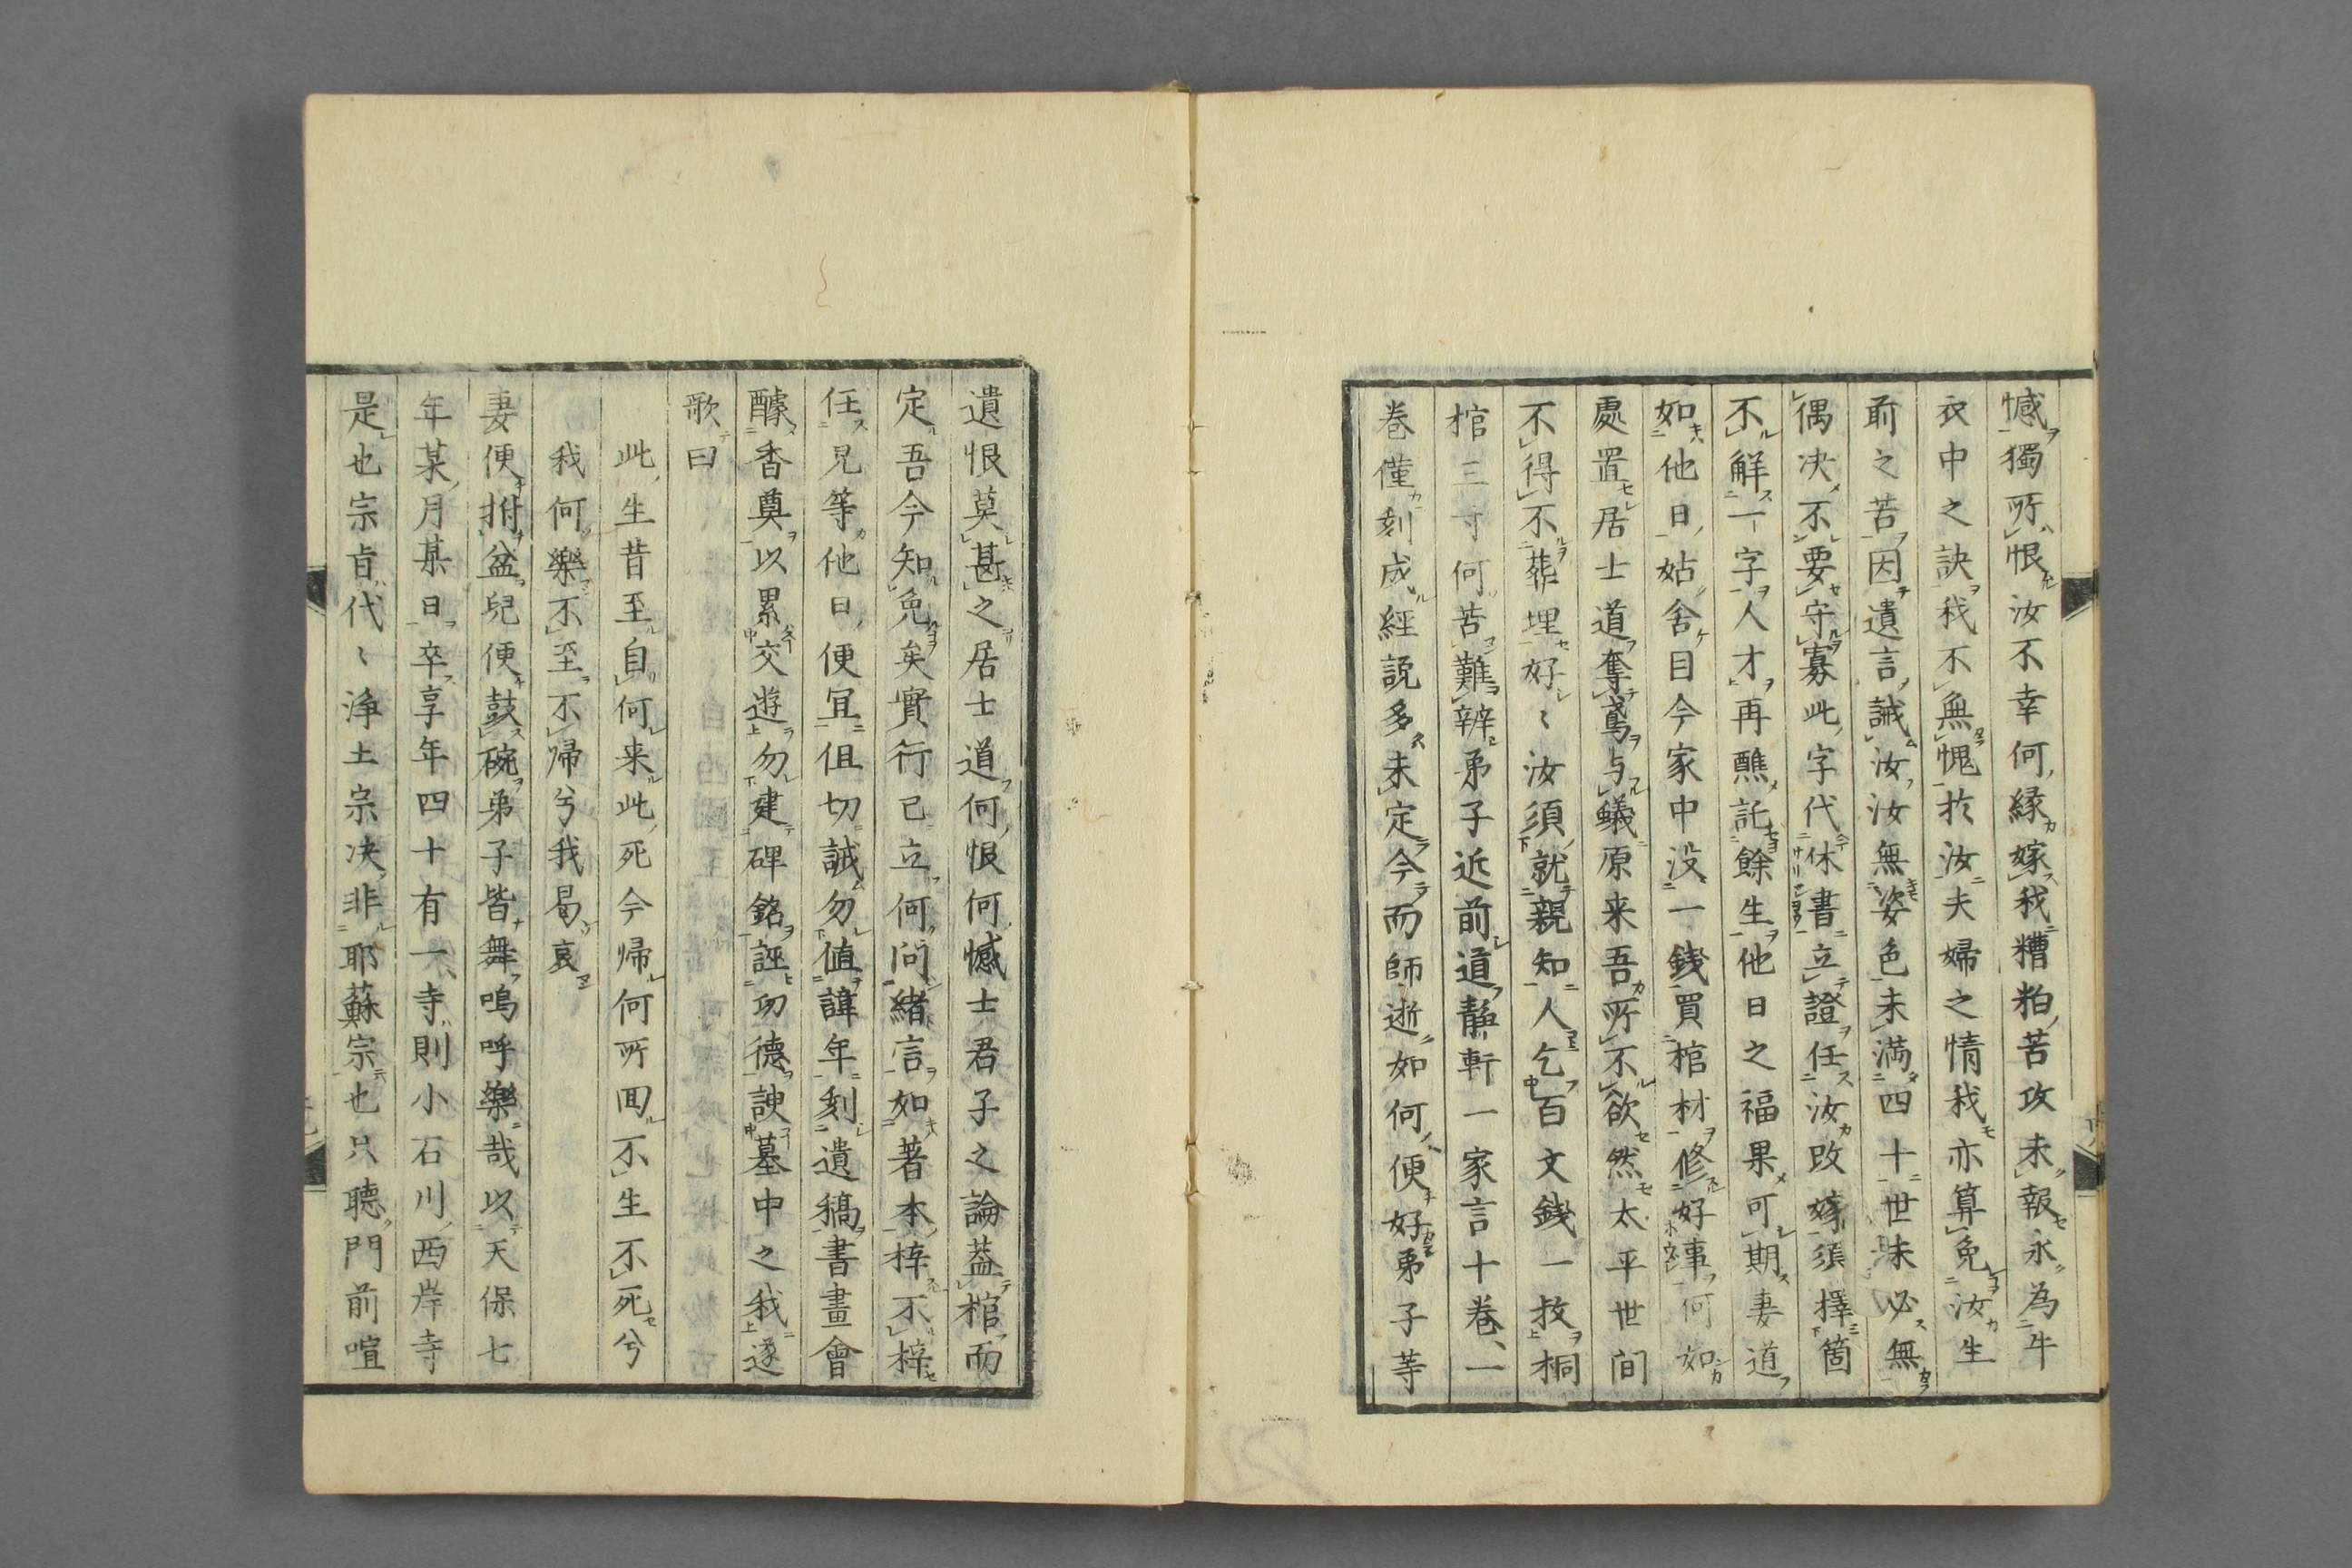 憾獨所恨汝不幸何緣嫁我糟粕苦攻未報永為牛
衣中之訣我不無愧於汝夫婦之情我亦算免汝生
前之苦因遺言誡汝汝無姿色未満四十世未必無
偶决不要守寡此字代休書立證任汝改嫁須擇箇
不解一字人才再醮託餘生他日之福果可期妻道
如他日姑舍目今家中没一錢買棺材修好事何如
處置居士道奪鳶与蟻原来吾所不欲然太平世間
不得不葬埋好〻汝須就親知人乞百文錢一枚桐
棺三寸何苦難辨弟子近前道静軒一家言十巻一
巻僅刻成經説多未定今而師逝如何便好弟子等
遺恨莫甚之居士道何恨何憾士君子之論蓋棺而
定吾今知免矣實行已立何問緒言如著本梓不梓
任兒等他日便冝但切誡勿値諱年刻遺稿書畫會
醵香奠以累交遊勿建碑銘誣功德諛墓中之我遂
歌曰
此生昔至自何来此死今帰何所囬不生不死兮
我何樂不至不帰兮我曷哀
妻便拊盆兒便鼓碗弟子皆舞嗚呼樂哉以天保七
年某月某日卒享年四十有一寺則小石川西岸寺
是也宗旨代〻浄土宗决非耶蘇宗也只聽門前喧